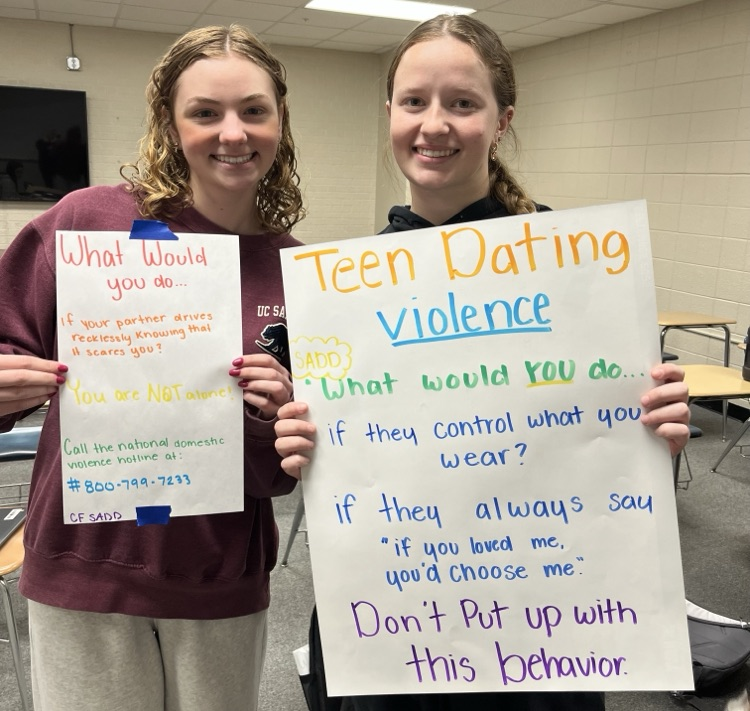 What Would
you do...
if your partner drives
recklessly knowing that
it scares you?
You are NOT alone!
Call the national domestic
violence hotline at:
#800-799-7233
CF SADD
UC SA
Teen Dating
violence
SADD
What would YOU do...
if they control what you
wear?
if they always say
"if you loved me,
you'd choose me."
Don't Put up with
this behavior.